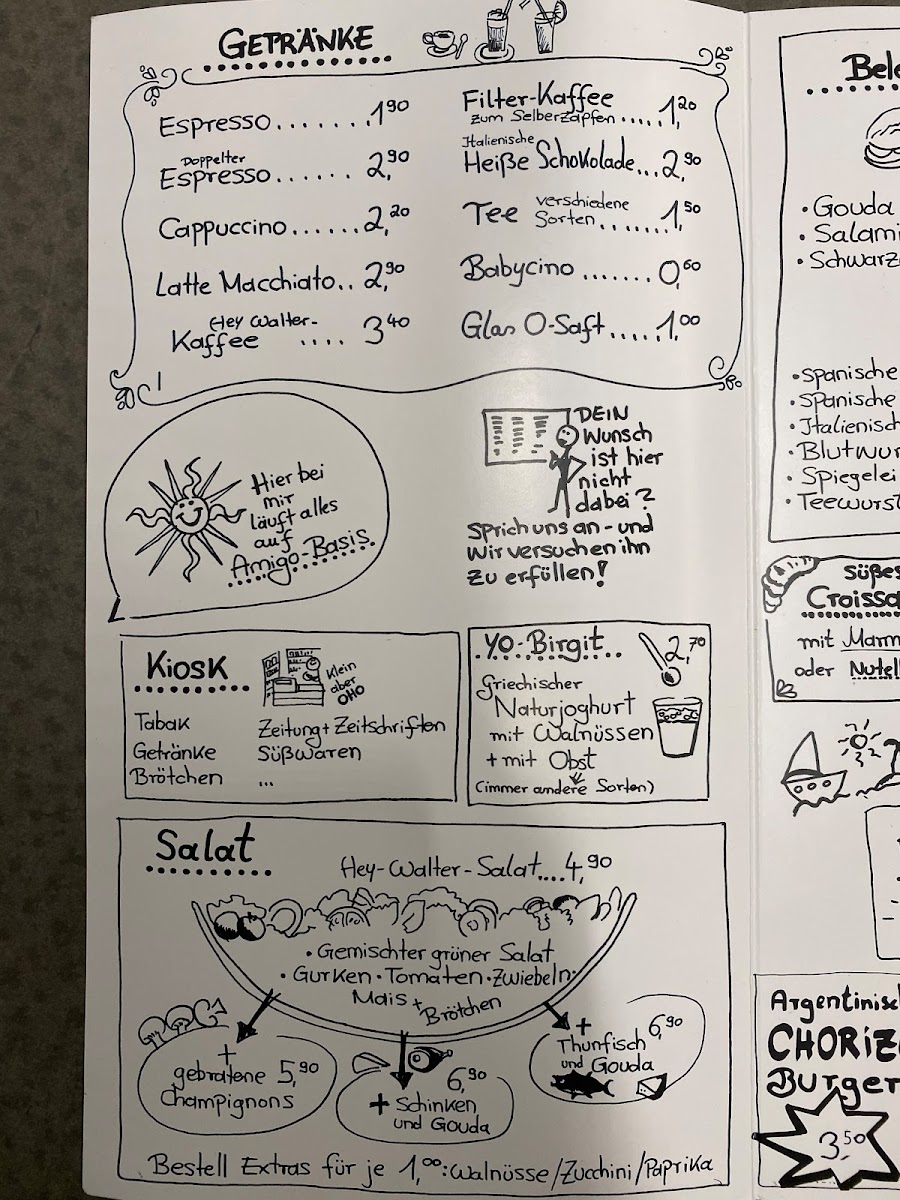 GETRÄNKE
Espresso.......1,90
Doppelter
Espresso......2,90
Cappuccino......2,20
Latte Macchiato..2,90
Hey Walter-
Kaffee .... 3,40
Filter-Kaffee
zum Selberzapfen.....1,20
Italienische
Heiße Schokolade...2,90
Tee verschiedene
Sorten........1,50
Babycino.......0,60
Glas O-Saft.....1,00
Hier bei
mir
läuft alles
auf
Amigo-Basis
DEIN
Wunsch
ist hier
nicht
dabei?
Sprich uns an - und
wir versuchen ihn
zu erfüllen!
Kiosk
Klein
aber
OHO
Tabak Zeitung+Zeitschriften
Getränke Süßwaren
Brötchen ...
YO-Birgit 2,70
Griechischer
Naturjoghurt
mit Walnüssen
+ mit Obst
(immer andere Sorten)
Salat
Hey-Walter-Salat....4,90
• Gemischter grüner Salat
• Gurken • Tomaten • Zwiebeln •
Mais + Brötchen
+
gebratene 5,90
Champignons
6,90
+ Schinken
und Gouda
+ 6,90
Thunfisch
und Gouda
Bestell Extras für je 1,00: Walnüsse/Zucchini/Paprika
Bele
• Gouda
• Salami
• Schwarz
• Spanische
• Spanische
• Italienisch
• Blutwur
• Spiegelei
• Teewurst
Süßes
Croissa
mit Marm
oder Nutel
Argentinisch
CHORIZ
Burger
3,50